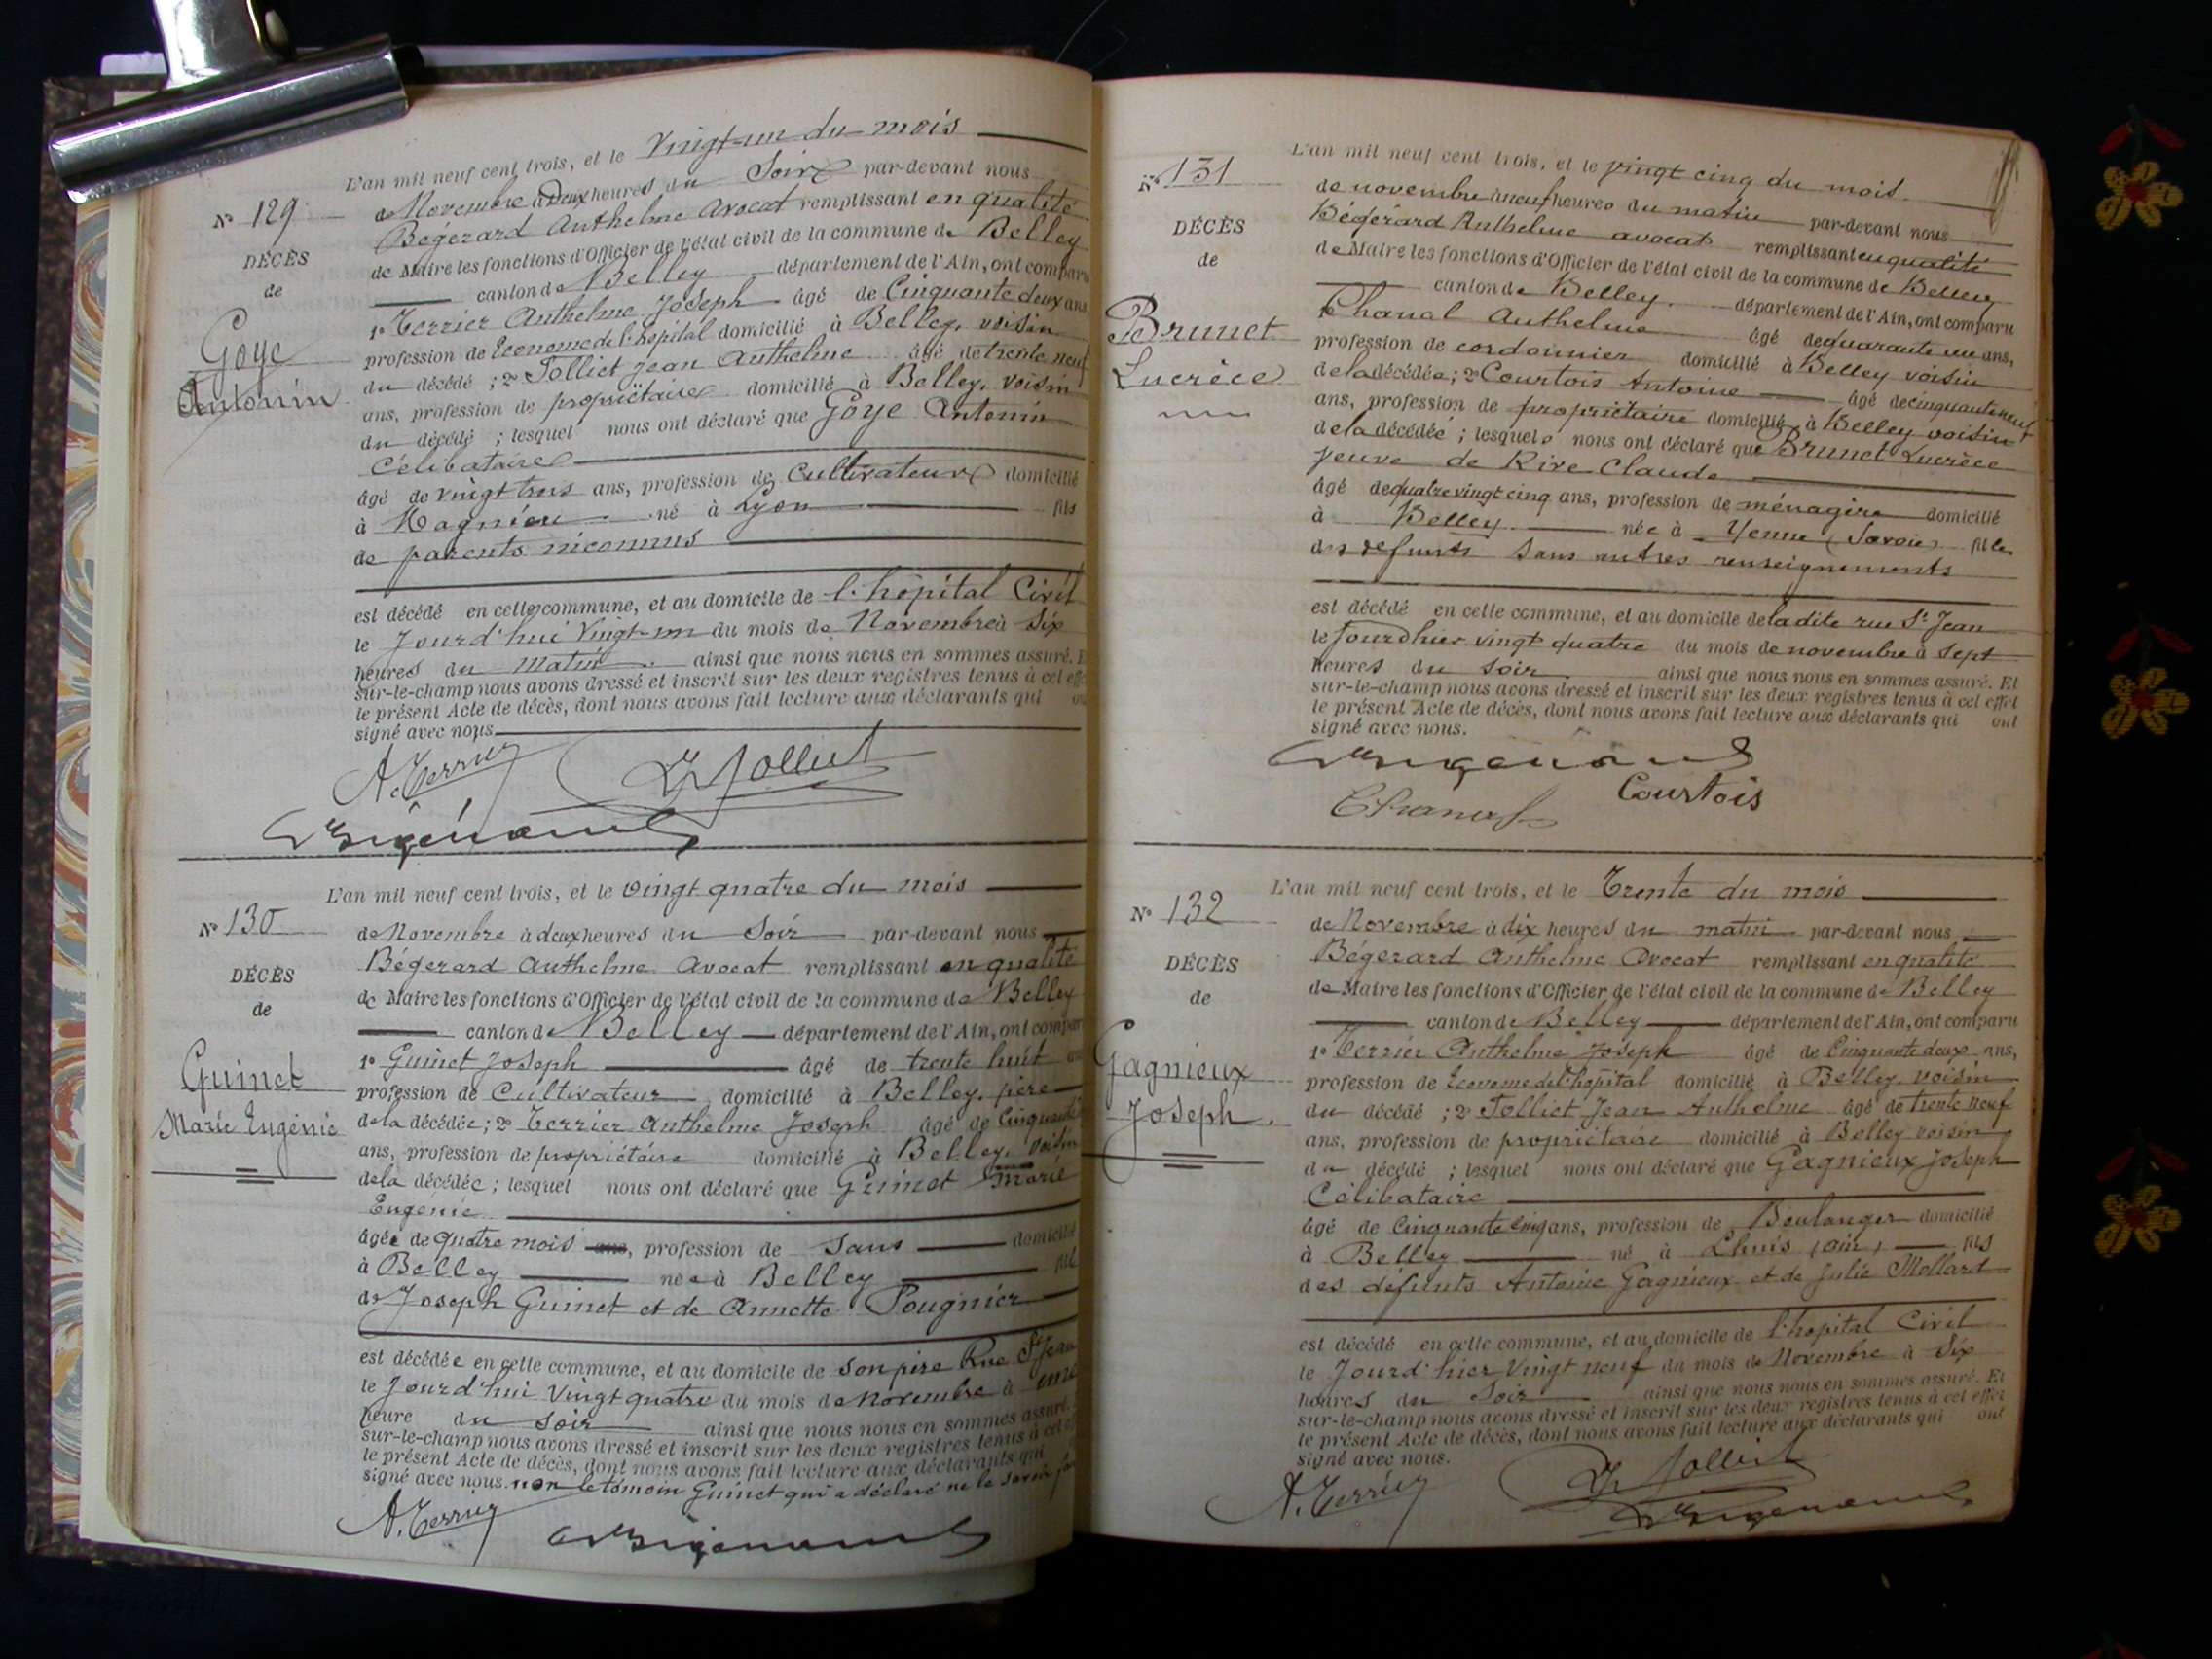 L'an mil neuf cent trois, et le Vingt-un du mois
Nº 129
DÉCÈS
de
Goye
Antonin
de Novembre à Deux heures du Soir par-devant nous
Bégerard Anthelme Avocat remplissant en qualité
de Maire les fonctions d'Officier de l'état civil de la commune de Belley
canton de Belley département de l'Ain, ont comparu
1º Terrier Anthelme Joseph âgé de Cinquante deux ans
profession de Econome de l'hopital domicilié à Belley, voisin
du décédé ; 2º Tolliet Jean Anthelme âgé de trente neuf
ans, profession de propriétaire domicilié à Belley, voisin
du décédé ; lesquel nous ont déclaré que Goye Antonin
Célibataire
âgé de vingt trois ans, profession de Cultivateur domicilié
à Magnieu né à Lyon fils
de parents inconnus
est décédé en cette commune, et au domicile de l'hôpital Civil
le Jourd'hui Vingt-un du mois de Novembre à Six
heures du Matin ainsi que nous nous en sommes assuré. E
sur-le-champ nous avons dressé et inscrit sur les deux registres tenus à cet effe
le présent Acte de décès, dont nous avons fait lecture aux déclarants qui on
signé avec nous.
A. Terrier
J Tolliet
Bégerard
L'an mil neuf cent trois, et le vingt quatre du mois
Nº 130
DÉCÈS
de
Guinet
Marie Eugénie
de Novembre à deux heures du Soir par-devant nous
Bégerard Anthelme Avocat remplissant en qualité
de Maire les fonctions d'Officier de l'état civil de la commune de Belley
canton de Belley département de l'Ain, ont compar
1º Guinet Joseph âgé de trente huit an
profession de Cultivateur domicilié à Belley, père
de la décédée ; 2º Terrier Anthelme Joseph âgé de Cinquante
ans, profession de propriétaire domicilié à Belley, voisin
de la décédée ; lesquel nous ont déclaré que Guinet Marie
Eugénie
âgée de quatre mois ans, profession de Sans domicilié
à Belley née à Belley fil
de Joseph Guinet et de Annette Pougnier
est décédée en cette commune, et au domicile de son père Rue St Jean
le Jourd'hui Vingt quatre du mois de Novembre à une
heure du Soir ainsi que nous nous en sommes assuré.
sur-le-champ nous avons dressé et inscrit sur les deux registres tenus à cet e
le présent Acte de décès, dont nous avons fait lecture aux déclarants qui
signé avec nous. non le témoin Guinet qui a déclaré ne le savoir
A. Terrier
Bégerard
L'an mil neuf cent trois, et le vingt cinq du mois
Nº 131
DÉCÈS
de
Brunet
Lucrèce
de novembre à neuf heures du matin par-devant nous
Bégerard Anthelme avocat remplissant en qualité
de Maire les fonctions d'Officier de l'état civil de la commune de Belley
canton de Belley département de l'Ain, ont comparu
1º Chanal Anthelme âgé de quarante un ans,
profession de cordonnier domicilié à Belley voisin
de la décédée ; 2º Courtois Antoine âgé de cinquante neuf
ans, profession de propriétaire domicilié à Belley voisin
de la décédée ; lesquels nous ont déclaré que Brunet Lucrèce
veuve de Rive Claude
âgé de quatre vingt cinq ans, profession de ménagère domicilié
à Belley née à Yenne (Savoie) fille
des defunts sans autres renseignements
est décédé en cette commune, et au domicile de la dite rue St Jean
le Jourdhier vingt quatre du mois de novembre à sept
heures du soir ainsi que nous nous en sommes assuré. Et
sur-le-champ nous avons dressé et inscrit sur les deux registres tenus à cet effet
le présent Acte de décès, dont nous avons fait lecture aux déclarants qui ont
signé avec nous.
Bégerard
Courtois
Chanal
L'an mil neuf cent trois, et le Trente du mois
Nº 132
DÉCÈS
de
Gagnieux
Joseph.
de Novembre à dix heures du matin par-devant nous
Bégerard Anthelme Avocat remplissant en qualité
de Maire les fonctions d'Officier de l'état civil de la commune de Belley
canton de Belley département de l'Ain, ont comparu
1º Terrier Anthelme Joseph âgé de Cinquante deux ans,
profession de Econome de l'hopital domicilié à Belley voisin
du décédé ; 2º Tolliet Jean Anthelme âgé de trente neuf
ans, profession de propriétaire domicilié à Belley voisin
du décédé ; lesquel nous ont déclaré que Gagnieux Joseph
Célibataire
âgé de Cinquante cinq ans, profession de Boulanger domicilié
à Belley né à Lhuis (Ain) fils
des défunts Antoine Gagnieux et de Julie Mollard
est décédé en cette commune, et au domicile de l'hopital Civil
le Jourd'hier Vingt neuf du mois de Novembre à Six
heures du Soir ainsi que nous nous en sommes assuré. Et
sur-le-champ nous avons dressé et inscrit sur les deux registres tenus à cet effet
le présent Acte de décès, dont nous avons fait lecture aux déclarants qui ont
signé avec nous.
A. Terrier
J Tolliet
Bégerard